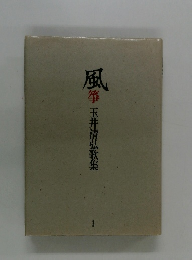 風箏
玉井清弘歌集
1